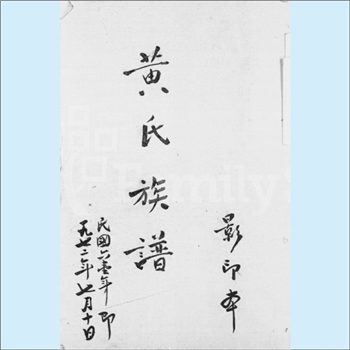 影印本
黃氏族譜
民國六壹年印
一九七二年七月十日
Family